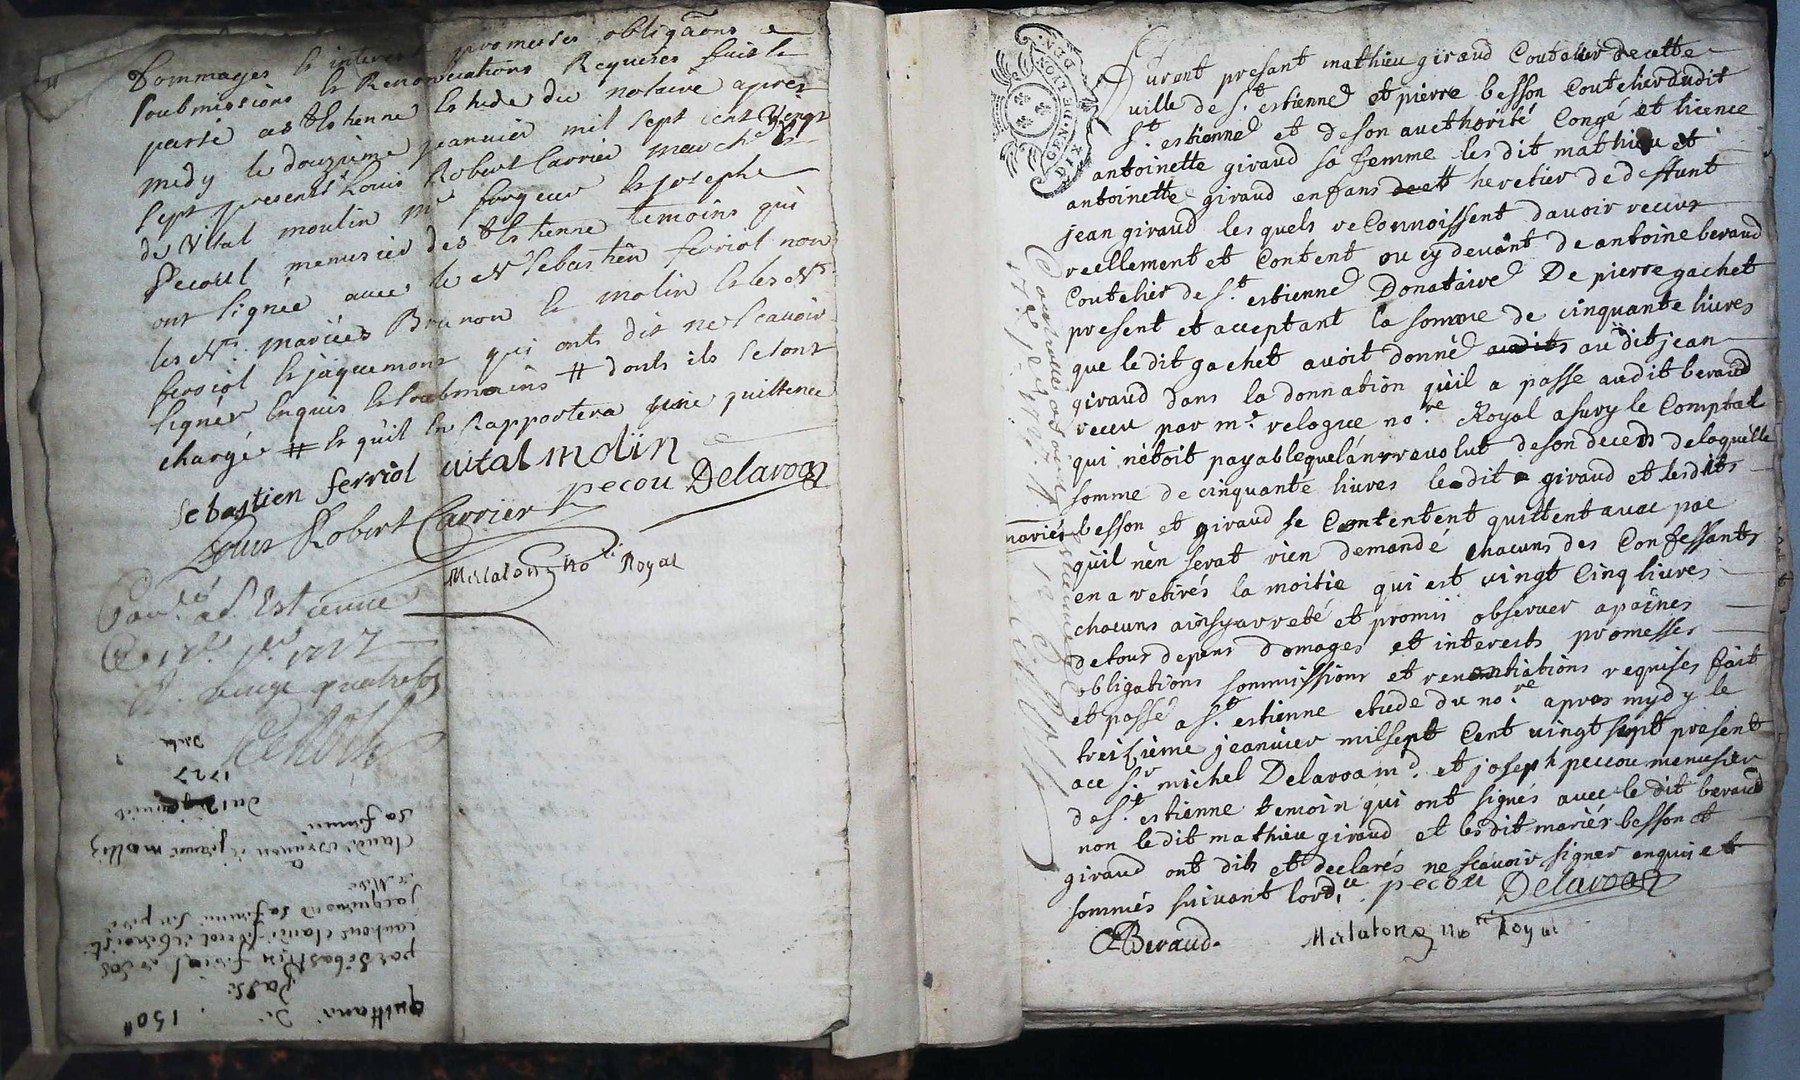 Dommages & interest promesses obligãons
soubmissions & Renonciations Requises fait &
parsé a St Estienne Estude du notaire apres
midy le douzieme jeanvier mil sept cent vingt
sept presents Louis Robert Carrier march
de Vital moulin me forgeur & Josephe
Pecoul menusier de St Estienne temoins qui
ont signée avec le dt Sebastien ferriol non
les dts mariées Brunon & molin & les dts
ferriol & jaquemont qui onts dit ne scavoir
signer Enquis & soubmoins # donts ils se sont
chargé # & qu'il En Rapportera quittence
sebastien ferriol vital molin
Louis Robert Carrier pecou Delaroa
Merlaton no.re Royal
Con.lé a S. Estienne
Le 12e 1727
Reçu quatre
1727
Du 12 janvier
sa femme
claude brunon et
jacquemond sa femme
par sebastien feriol
passé
quittance de 150#
GEN DE LYON
DIX DEN
Furent présant mathieu giraud Coutelier de cette
ville de S.t estienne et pierre besson Coutelier dudit
S.t estienne et de son aucthorité Congé et licence
antoinette giraud sa femme lesdit mathieu et
antoinette giraud enfans de et heretier de deffunt
jean giraud lesquels reConnoissent davoir receus
reellement et Content ou cy devant de antoine beraud
Coutelier de S.t estienne Donataire De pierre gachet
present et acceptant la somme de cinquante livres
que le dit gachet avoit donné audits au dit jean
giraud dans la donnation qu'il a passe audit beraud
receu par m.e relogue no.re Royal a sury le Comptal
qui n'etoit payable quel an revolut de son deceds de laquelle
somme de cinquante livres le dit giraud et lesdits
mariés besson et giraud se Contentent quittent avac pac
qu'il n'en serat rien demandé chacuns des Confessants
en a retirés la moitie qui est vingt Cinq livres
chacuns ainsy arreté et promis observer a paines
de tous depens domages et interests promesses
obligations sommissions et renontiations requises fait
et passé a S.t estienne etude du no.re apres mydy le
treizieme jeanvier mil sept Cent vingt sept present
ace S.r michel Delaroa m.d et joseph peccou menusier
de S.t estienne temoin qui ont signés avec le dit beraud
non le dit mathieu giraud et lesdit mariés besson et
giraud ont dits et declarés ne scavoir signer enquis et
sommés suivant lord.ce pecou Delaroa
ABeraud
Merlaton no.re Royal